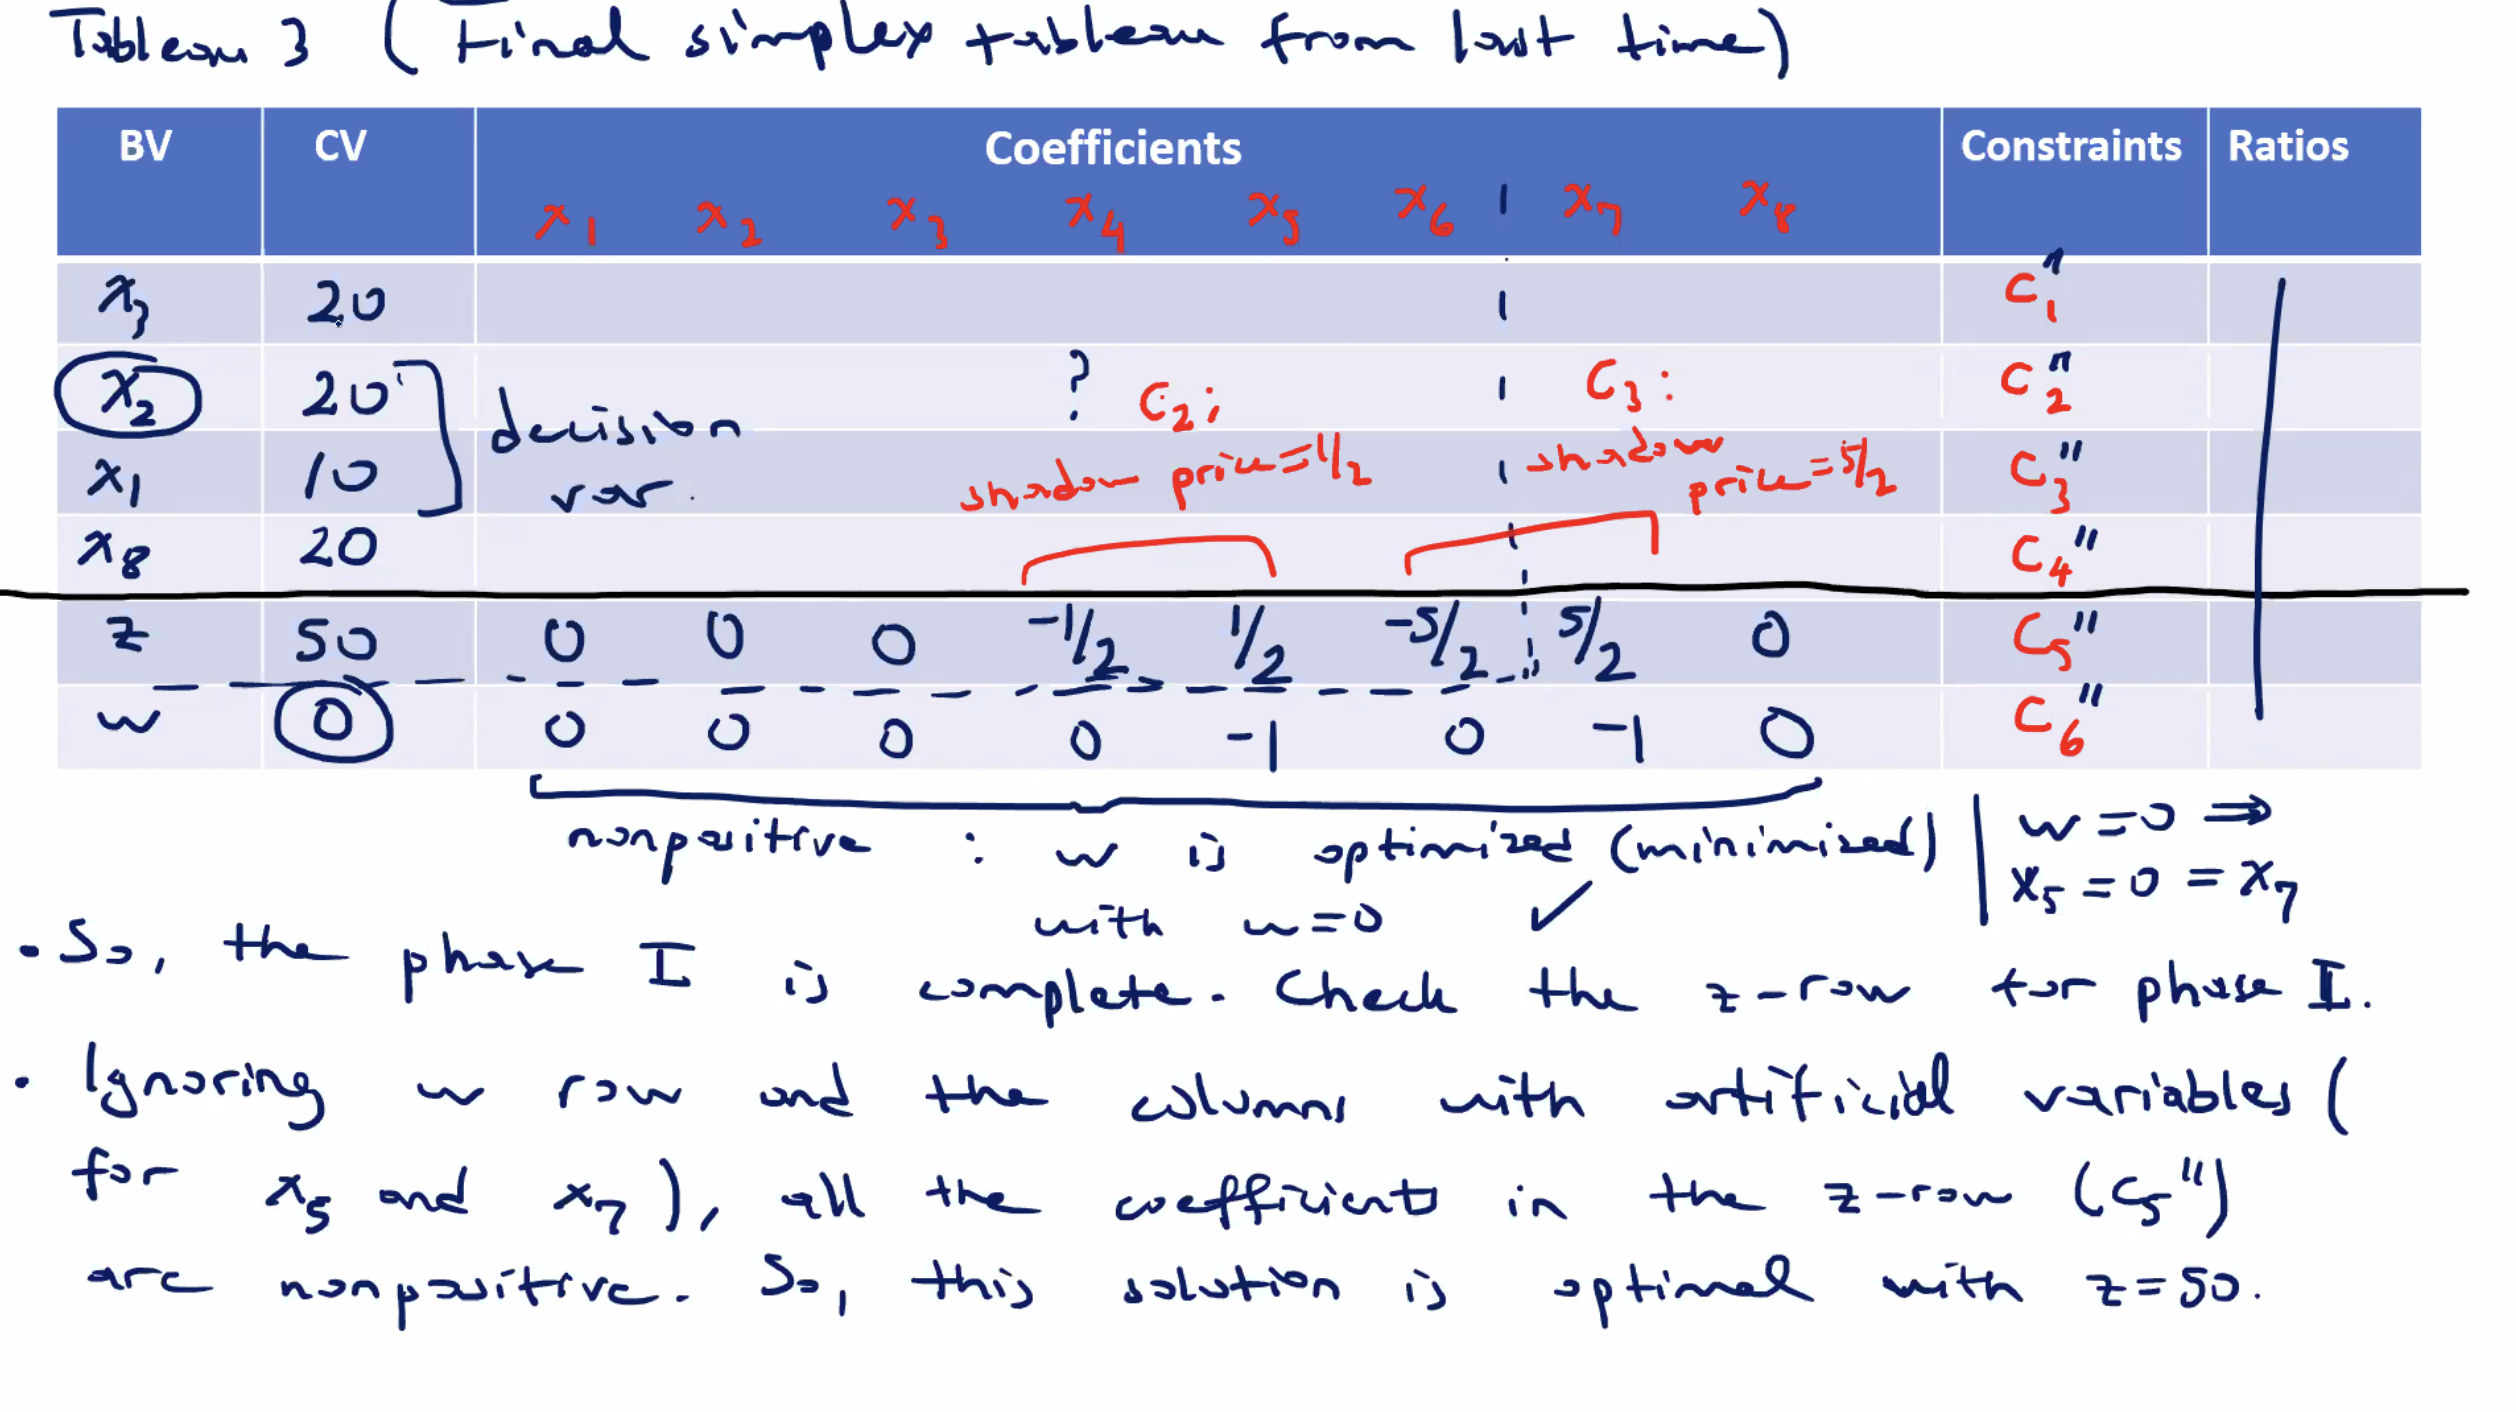 Tableau 3 (Final simplex tableau from last time)
BV CV Coefficients Constraints Ratios
x1 x2 x3 x4 x5 x6 x7 x8
x3 20 C1"
x2 20 ? C2: C3: C2"
decision
x1 10 var. shadow price=1/2 shadow price=5/2 C3"
x8 20 C4"
z 50 0 0 0 -1/2 1/2 -5/2 5/2 0 C5"
w 0 0 0 0 0 -1 0 -1 0 C6"
nonpositive : w is optimized (minimized) w=0 ⇒
with w=0 ✓ x5=0=x7
• So, the phase I is complete. Check the z-row for phase I.
• Ignoring w row and the columns with artificial variables (
for x5 and x7), all the coefficients in the z-row (C5")
are nonpositive. So, this solution is optimal with z=50.